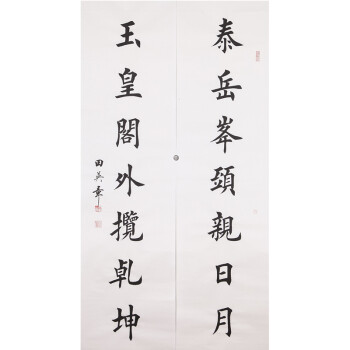 泰岳峯頭親日月
玉皇閣外攬乾坤
田英章